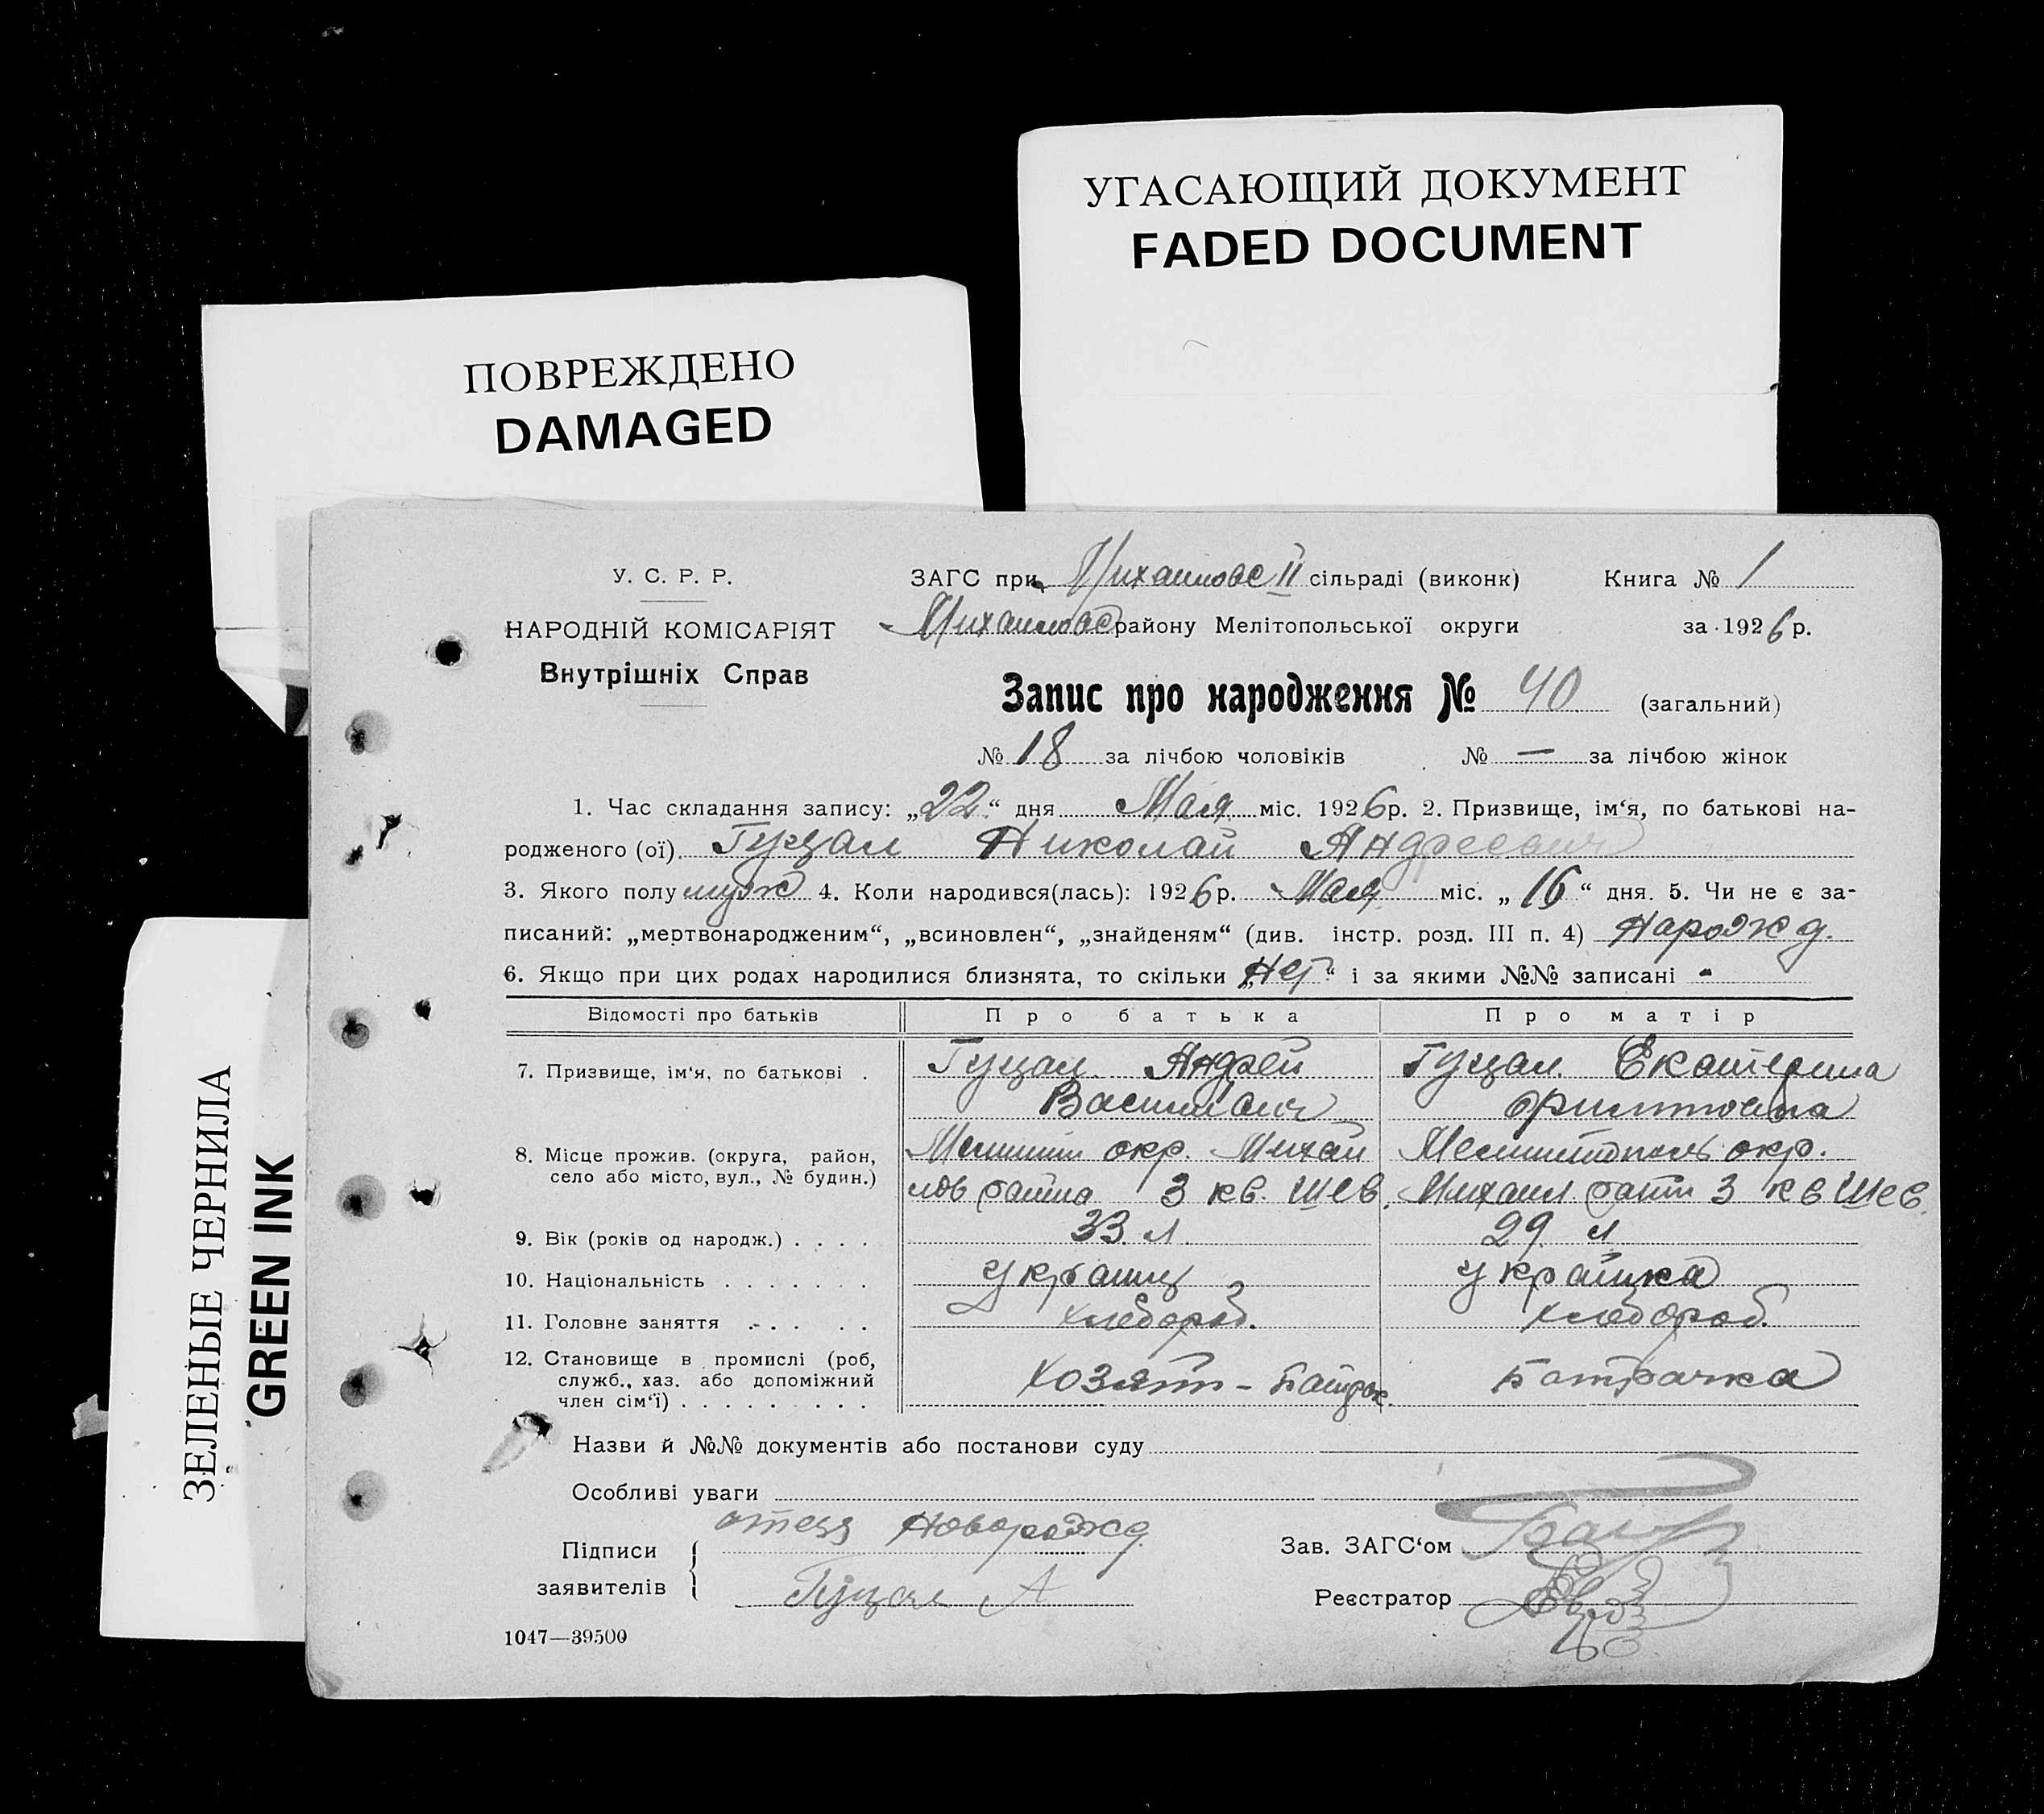 УГАСАЮЩИЙ ДОКУМЕНТ
FADED DOCUMENT
ПОВРЕЖДЕНО
DAMAGED
ЗЕЛЕНЫЕ ЧЕРНИЛА
GREEN INK
У. С. Р. Р.
НАРОДНІЙ КОМІСАРІЯТ
Внутрішніх Справ
ЗАГС при Михайловс II сільраді (виконк) Книга № 1
Михайловс району Мелітопольської округи за 1926 р.
Запис про народження № 40 (загальний)
№ 18 за лічбою чоловіків № — за лічбою жінок
1. Час складання запису: „22“ дня Мая міс. 1926 р. 2. Призвище, ім‘я, по батькові на-
родженого (ої) Гуцал Николай Андреевич
3. Якого полу муж 4. Коли народився(лась): 1926 р. Мая міс. „16“ дня. 5. Чи не є за-
писаний: „мертвонародженим“, „всиновлен“, „знайденям“ (див. інстр. розд. III п. 4) Нарожд.
6. Якщо при цих родах народилися близнята, то скільки „Нет“ і за якими №№ записані -
Відомості про батьків Про батька Про матір
7. Призвище, ім‘я, по батькові . Гуцал Андрей Гуцал Екатерина
Васильевич
8. Місце прожив. (округа, район, окр. Михай окр.
село або місто, вул., № будин.) лов района 3 кв. Шев. Михайл. 3 кв Шев.
9. Вік (років од народж.) . . . . 33 л. 29 л
10. Національність . . . . . . . украинц украинка
11. Головне заняття . . . . . хлебороб. хлебороб.
12. Становище в промислі (роб, служб., хаз. або допоміжний член сім‘ї) . . . . . . . . . - батрак. Батрачка
Назви й №№ документів або постанови суду
Особливі уваги
отец Новорожд
Підписи заявителів Гуцал А
Зав. ЗАГС‘ом
Реєстратор
1047—39500